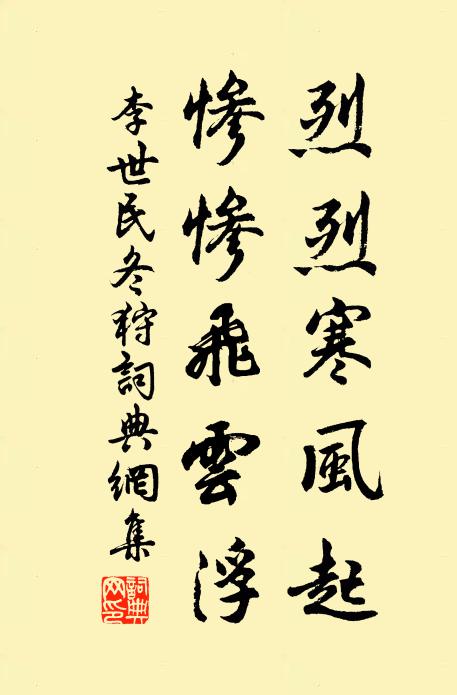 烈烈寒風起
慘慘飛雲浮
李世民冬狩詞典網集